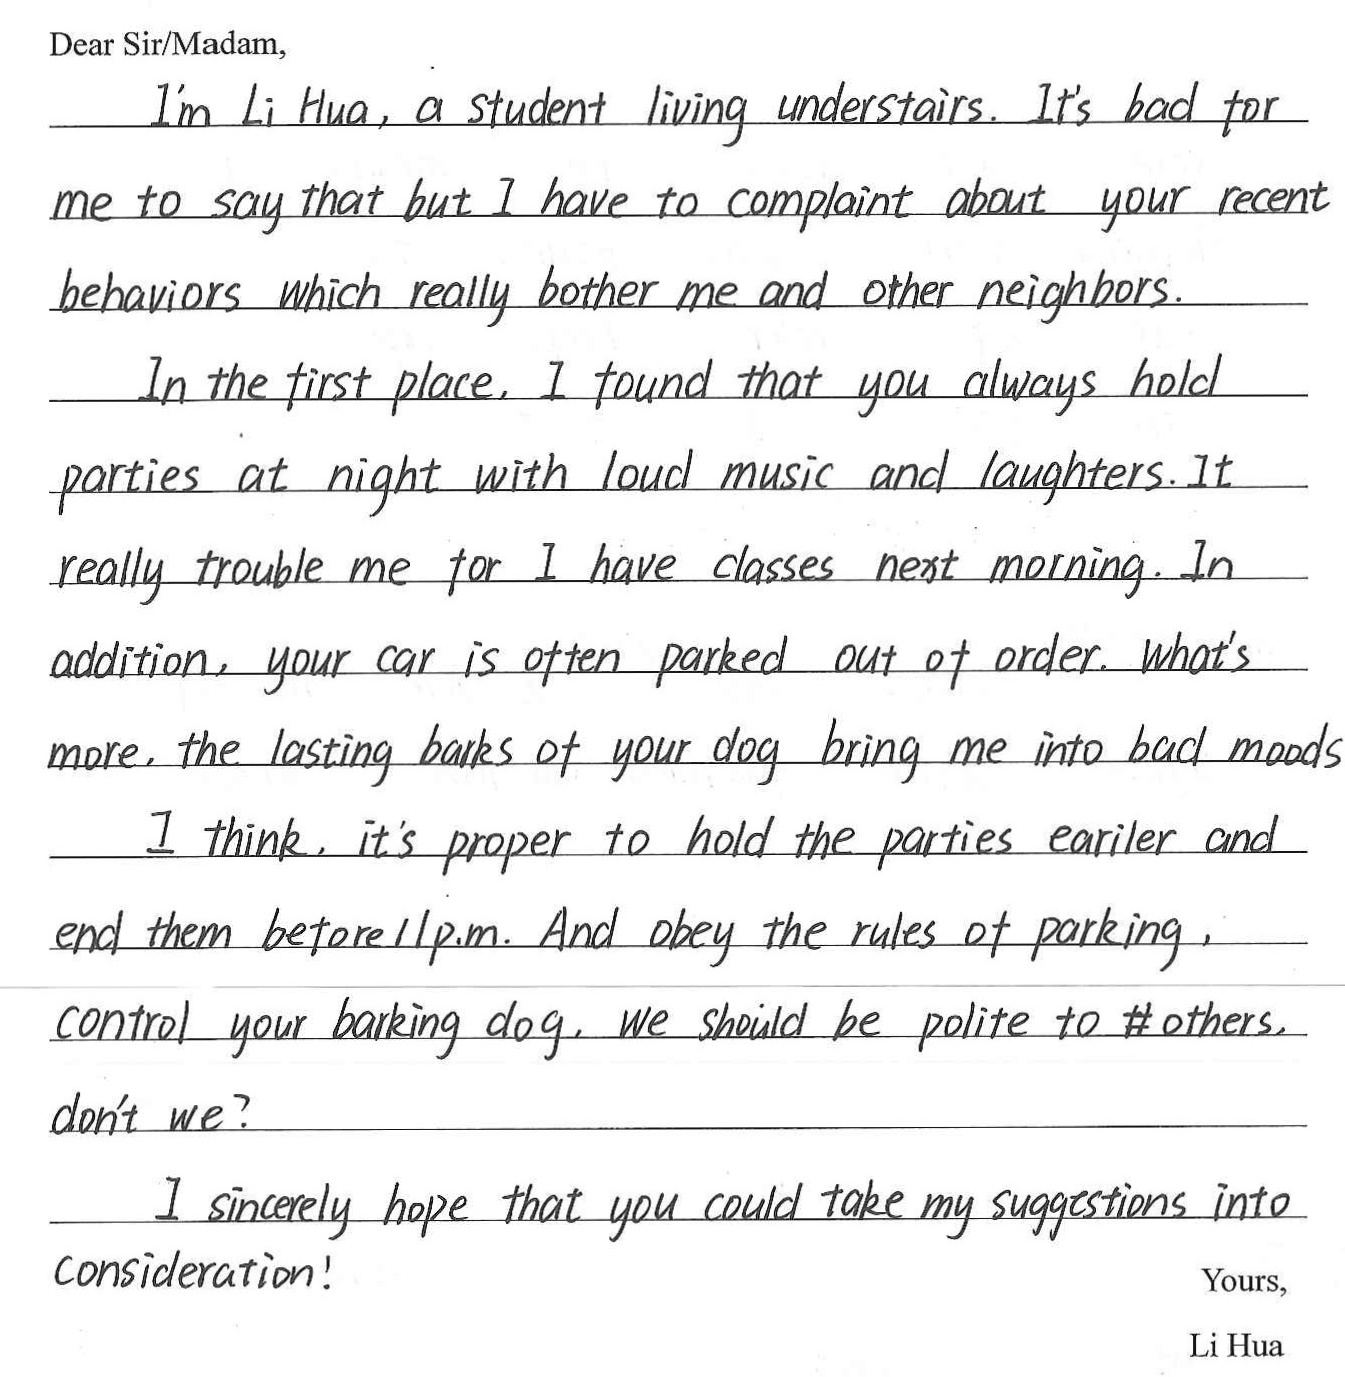 Dear Sir/Madam,
I'm Li Hua, a student living understairs. It's bad for
me to say that but I have to complaint about your recent
behaviors which really bother me and other neighbors.
In the first place, I found that you always hold
parties at night with loud music and laughters. It
really trouble me for I have classes next morning. In
addition, your car is often parked out of order. What's
more, the lasting barks of your dog bring me into bad moods
I think, it's proper to hold the parties eariler and
end them before 11 p.m. And obey the rules of parking,
control your barking dog. We should be polite to others,
don't we?
I sincerely hope that you could take my suggestions into
consideration!
Yours,
Li Hua